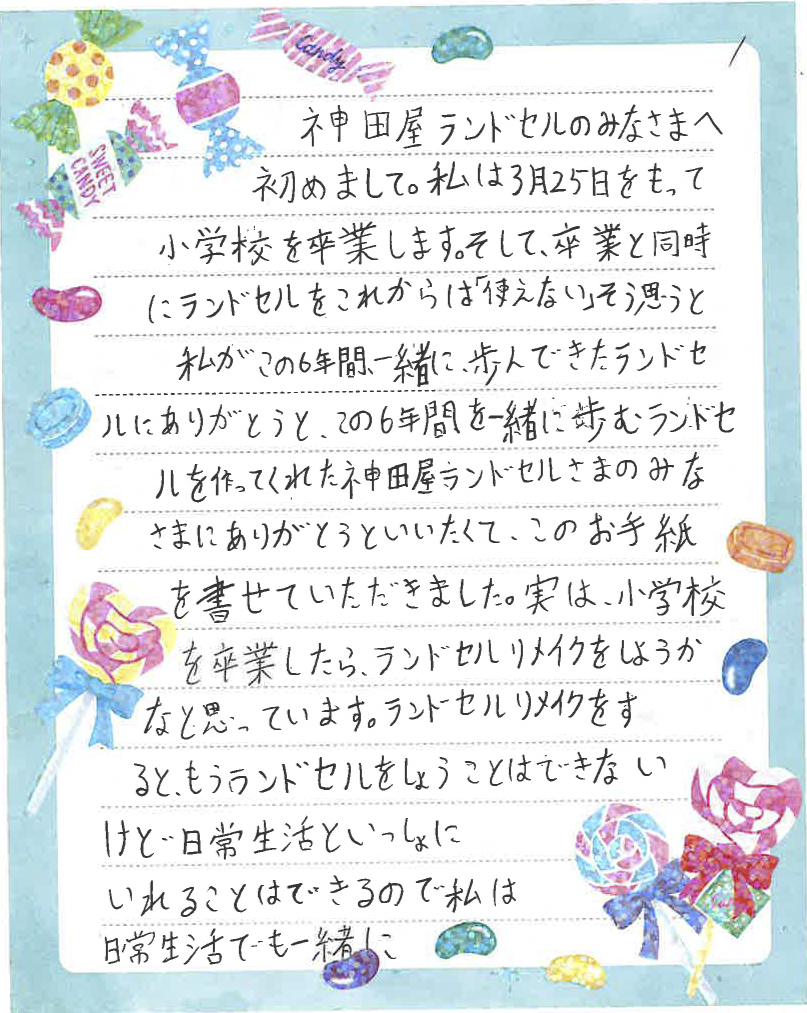 Candy
SWEET
CANDY
神田屋ランドセルのみなさまへ
初めまして。私は3月25日をもって
小学校を卒業します。そして、卒業と同時
にランドセルをこれからは「使えない」そう思うと
私がこの6年間、一緒に、歩んできたランドセ
ルにありがとうと、この6年間を一緒に歩むランドセ
ルを作ってくれた神田屋ランドセルさまのみな
さまにありがとうといいたくて、このお手紙
を書せていただきました。実は、小学校
を卒業したら、ランドセルリメイクをしようか
なと思っています。ランドセルリメイクをす
ると、もうランドセルをしょうことはできない
けど日常生活といっしょに
いれることはできるので私は
日常生活でも一緒に